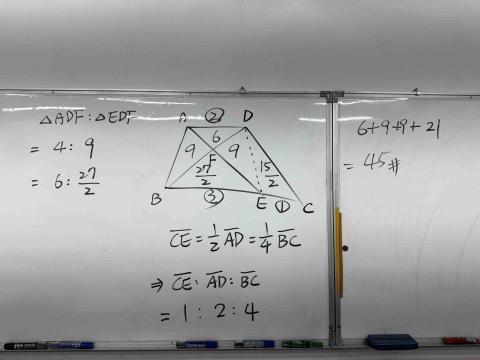 △ADF:△EDF
= 4:9
= 6:27/2
A ② D
6
9 F 9
27/2 15/2
B ③ E ① C
CE = 1/2 AD = 1/4 BC
⇒ CE:AD:BC
= 1:2:4
6+9+9+21
= 45#